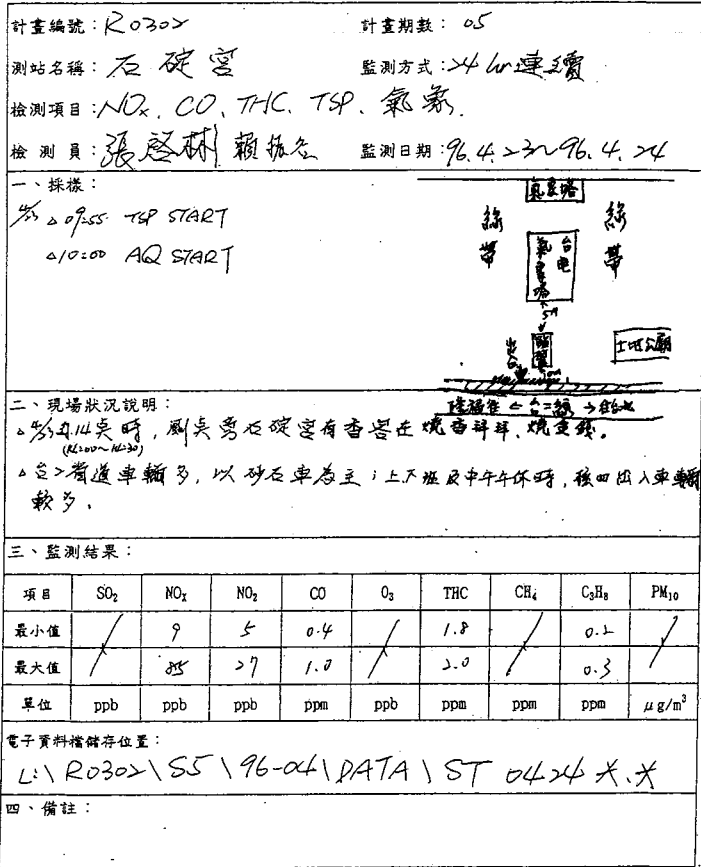 計畫編號：R0302 計畫期數：05
測站名稱：石碇宮 監測方式：24 hr連續
檢測項目：NOx、CO、THC、TSP、氣象.
檢測員：張啓林 賴振名 監測日期：96.4.23~96.4.24
一、採樣：
4/23 △09:55 TSP START
△10:00 AQ START
氣象塔
綠帶
台电氣象塔
綠帶
5M
土地公廟
台二線
二、現場狀況說明：
△4/23 14点時，剛好旁石碇宮有香客在燒香拜拜、燒金錢。
(14:00~14:30)
△台2省道車輛多，以砂石車為主；上下班及中午午休時，核四出入車輛
較多。
三、監測結果：
項目 SO2 NOX NO2 CO O3 THC CH4 C3H8 PM10
最小值 / 9 5 0.4 / 1.8 / 0.2 /
最大值 / 85 27 1.0 / 2.0 / 0.3 /
單位 ppb ppb ppb ppm ppb ppm ppm ppm μg/m³
電子資料檔儲存位置：
L:\R0302\S5\96-04\DATA\ST 0424 *.*
四、備註：